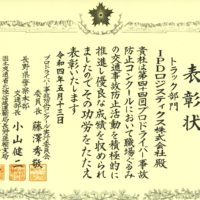 表彰状
トラック部門
IPDロジスティクス株式会社殿
貴社は第四十四回プロドライバー事故
防止コンクールにおいて職場ぐるみ
の交通事故防止活動を積極的に
推進し優良な成績を収められ
ましたのでその功労をたたえ
表彰いたします
令和四年五月十三日
プロドライバー事故防止コンクール実行委員会
委員長 藤澤秀敏
長野県警察本部
交通部長 小山健二